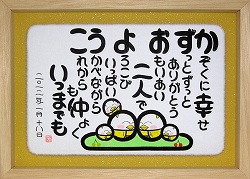 かぞくに幸せ
ずっとずっと
ありがとう
おもいあい
二人で
よろこび
いっぱい
うかべながら
これから
も仲よく
いつまでも